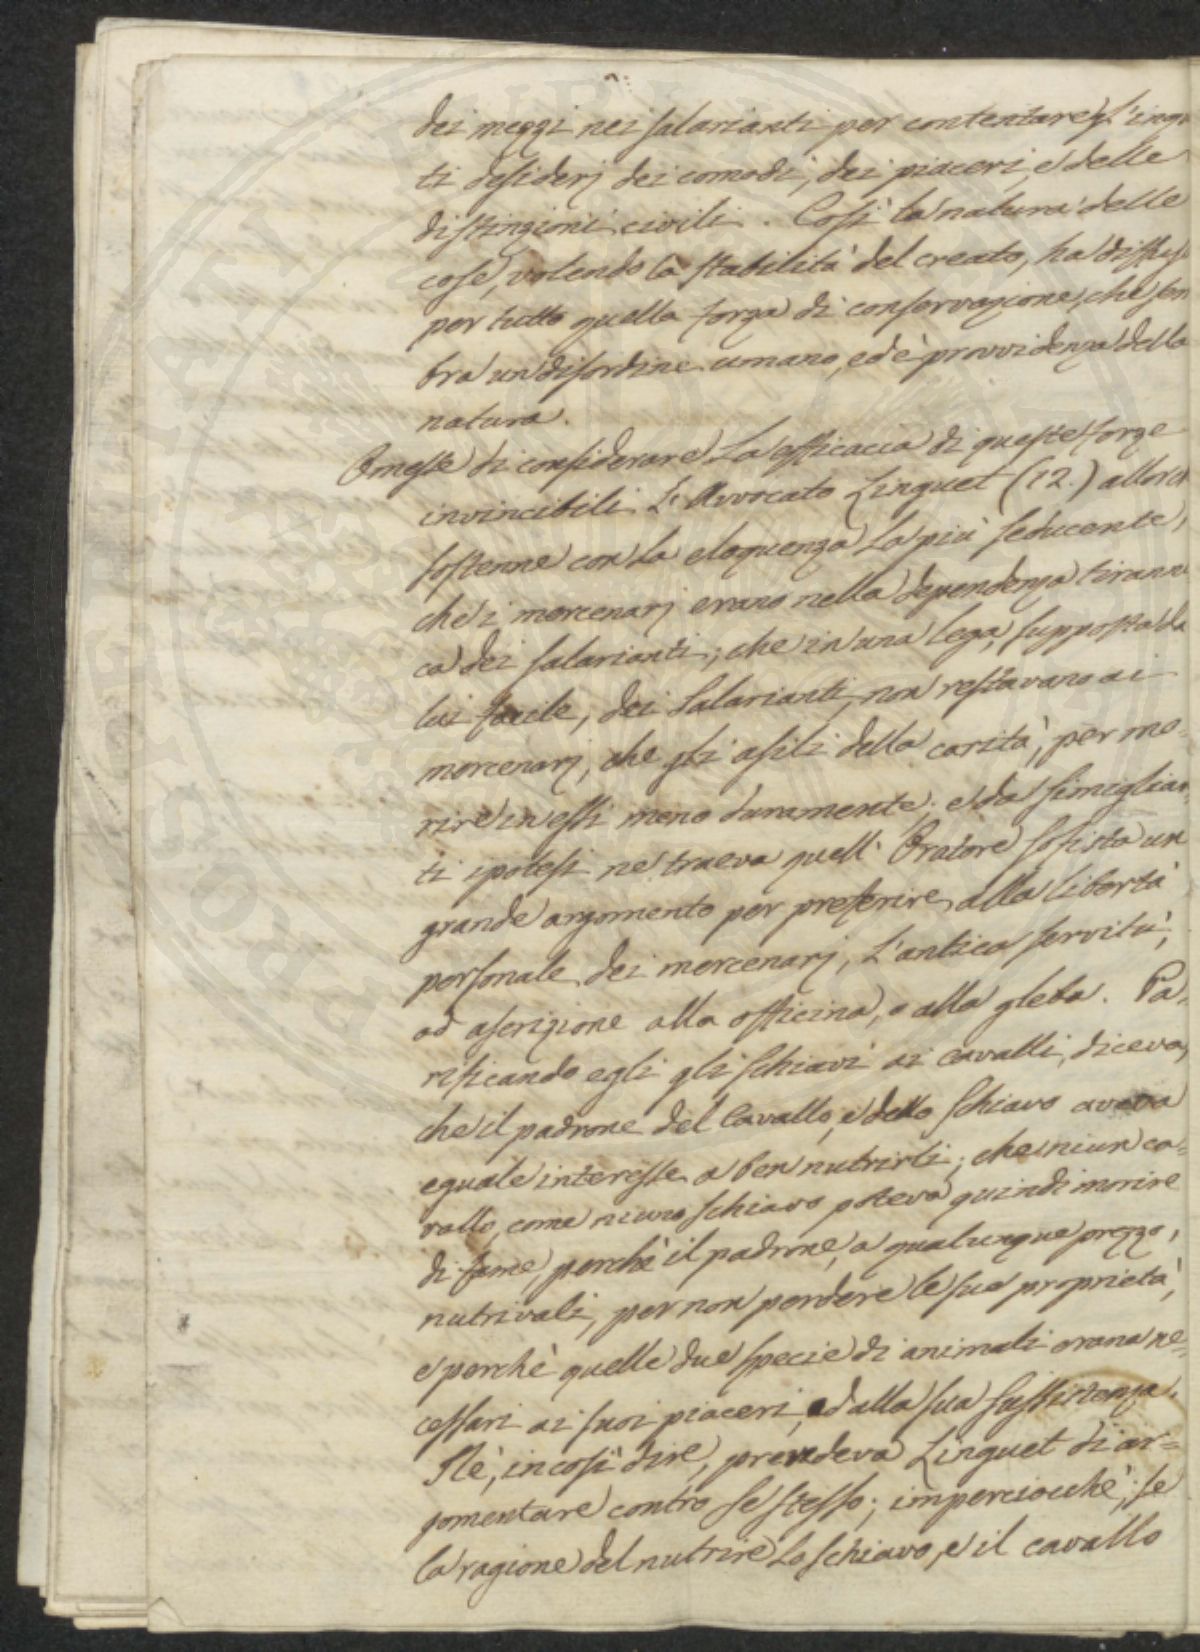 dei mezzi nei salarianti per contentare gl'inqu
ti desiderj dei comodi, dei piaceri, e delle
distinzioni civili. Così la natura delle
cose, volendo la stabilità del creato, ha diffuso
per tutto quella forza di conservazione, che sem
bra un disordine umano, ed è provvidenza della
natura.
Omesse di considerare la efficacia di queste forze
invincibili L'Avvocato Linguet (12.) allorchè
sostenne con la eloquenza la più seducente,
che i mercenarj erano nella dependenza tiranni
ca dei salarianti; che in una lega, supposta da
lui facile, dei Salarianti, non restavano ai
mercenarj, che gli asili della carità, per mo=
rire in essi meno duramente; e da simiglian=
ti ipotesi ne traeva quell'Oratore sofista un
grande argomento per preferire alla libertà
personale dei mercenarj, l'antica servitù,
ad ascrizione alla officina, o alla gleba. Pa=
rificando egli gli schiavi ai cavalli, diceva,
che il padrone del Cavallo, e dello schiavo aveva
eguale interesse a ben nutrirli; che niun ca=
vallo, come niuno schiavo poteva quindi morire
di fame, perchè il padrone, a qualunque prezzo,
nutrivali, per non perdere le sue proprietà,
e perchè quelle due specie di animali erano ne=
cessari ai suoi piaceri, ed alla sua sussistenza.
Nè, in così dire, prevedeva Linguet di ar=
gomentare contro se stesso; imperciocchè, se
la ragione del nutrire lo schiavo, e il cavallo